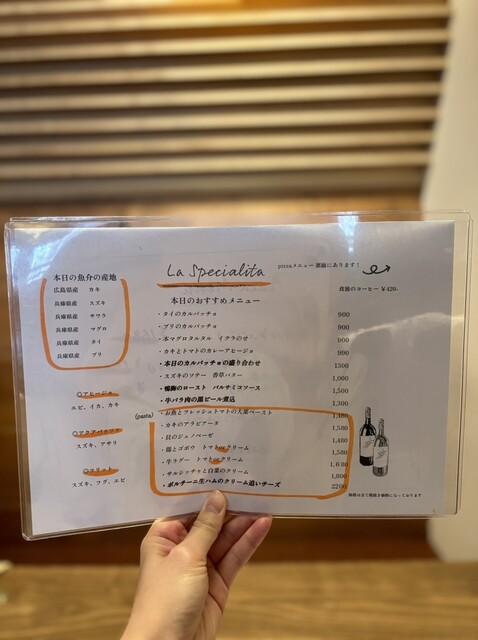 本日の魚介の産地
広島県産 カキ
兵庫県産 スズキ
兵庫県産 サワラ
兵庫県産 マグロ
兵庫県産 タイ
兵庫県産 ブリ
○アヒージョ
エビ、イカ、カキ
○アクアパッツァ
スズキ、アサリ
○フリット
スズキ、フグ、エビ
La Specialita
pizzaメニュー裏面にあります！
食後のコーヒー ¥420-
本日のおすすめメニュー
・タイのカルパッチョ 900
・ブリのカルパッチョ 900
・本マグロタルタル イクラのせ 900
・カキとトマトのカレーアヒージョ 900
・本日のカルパッチョの盛り合わせ
・スズキのソテー 香草バター 1,000
・鴨胸のロースト バルサミコソース 1,500
・牛バラ肉の黒ビール煮込 1,300
(pasta)
・お魚とフレッシュトマトの大葉ペースト
・カキのアラビアータ 1,580
・貝のジェノベーゼ 1,480
・鶏とゴボウ トマトorクリーム 1,580
・牛ラグー トマトorクリーム
・サルシッチャと白菜のクリーム 1,800
・ポルチーニ生ハムのクリーム追いチーズ 2200
価格は全て税抜き価格になっております